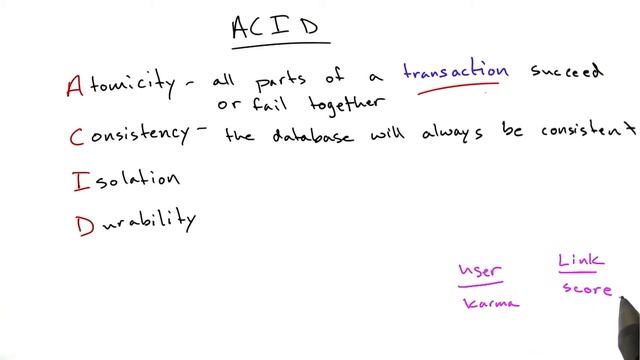 ACID
Atomicity - all parts of a transaction succeed
or fail together
Consistency - the database will always be consistent
Isolation
Durability
user Link
karma score